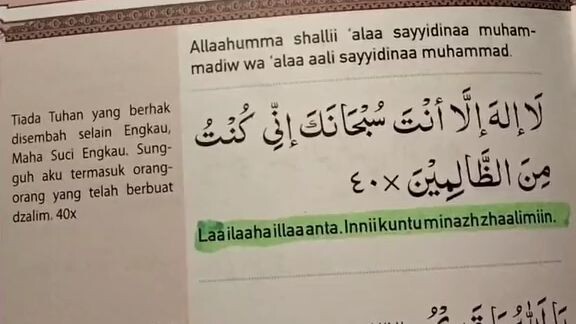 Allaahumma shallii 'alaa sayyidinaa muham-
madiw wa 'alaa aali sayyidinaa muhammad.
Tiada Tuhan yang berhak
disembah selain Engkau,
Maha Suci Engkau. Sung-
guh aku termasuk orang-
orang yang telah berbuat
dzalim. 40x
لَا إِلهَ إِلَّا أَنْتَ سُبْحَانَكَ إِنِّي كُنْتُ
مِنَ الظَّالِمِيْنَ ×٤٠
Laa ilaaha illaa anta. Innii kuntu minazhzhaalimiin.